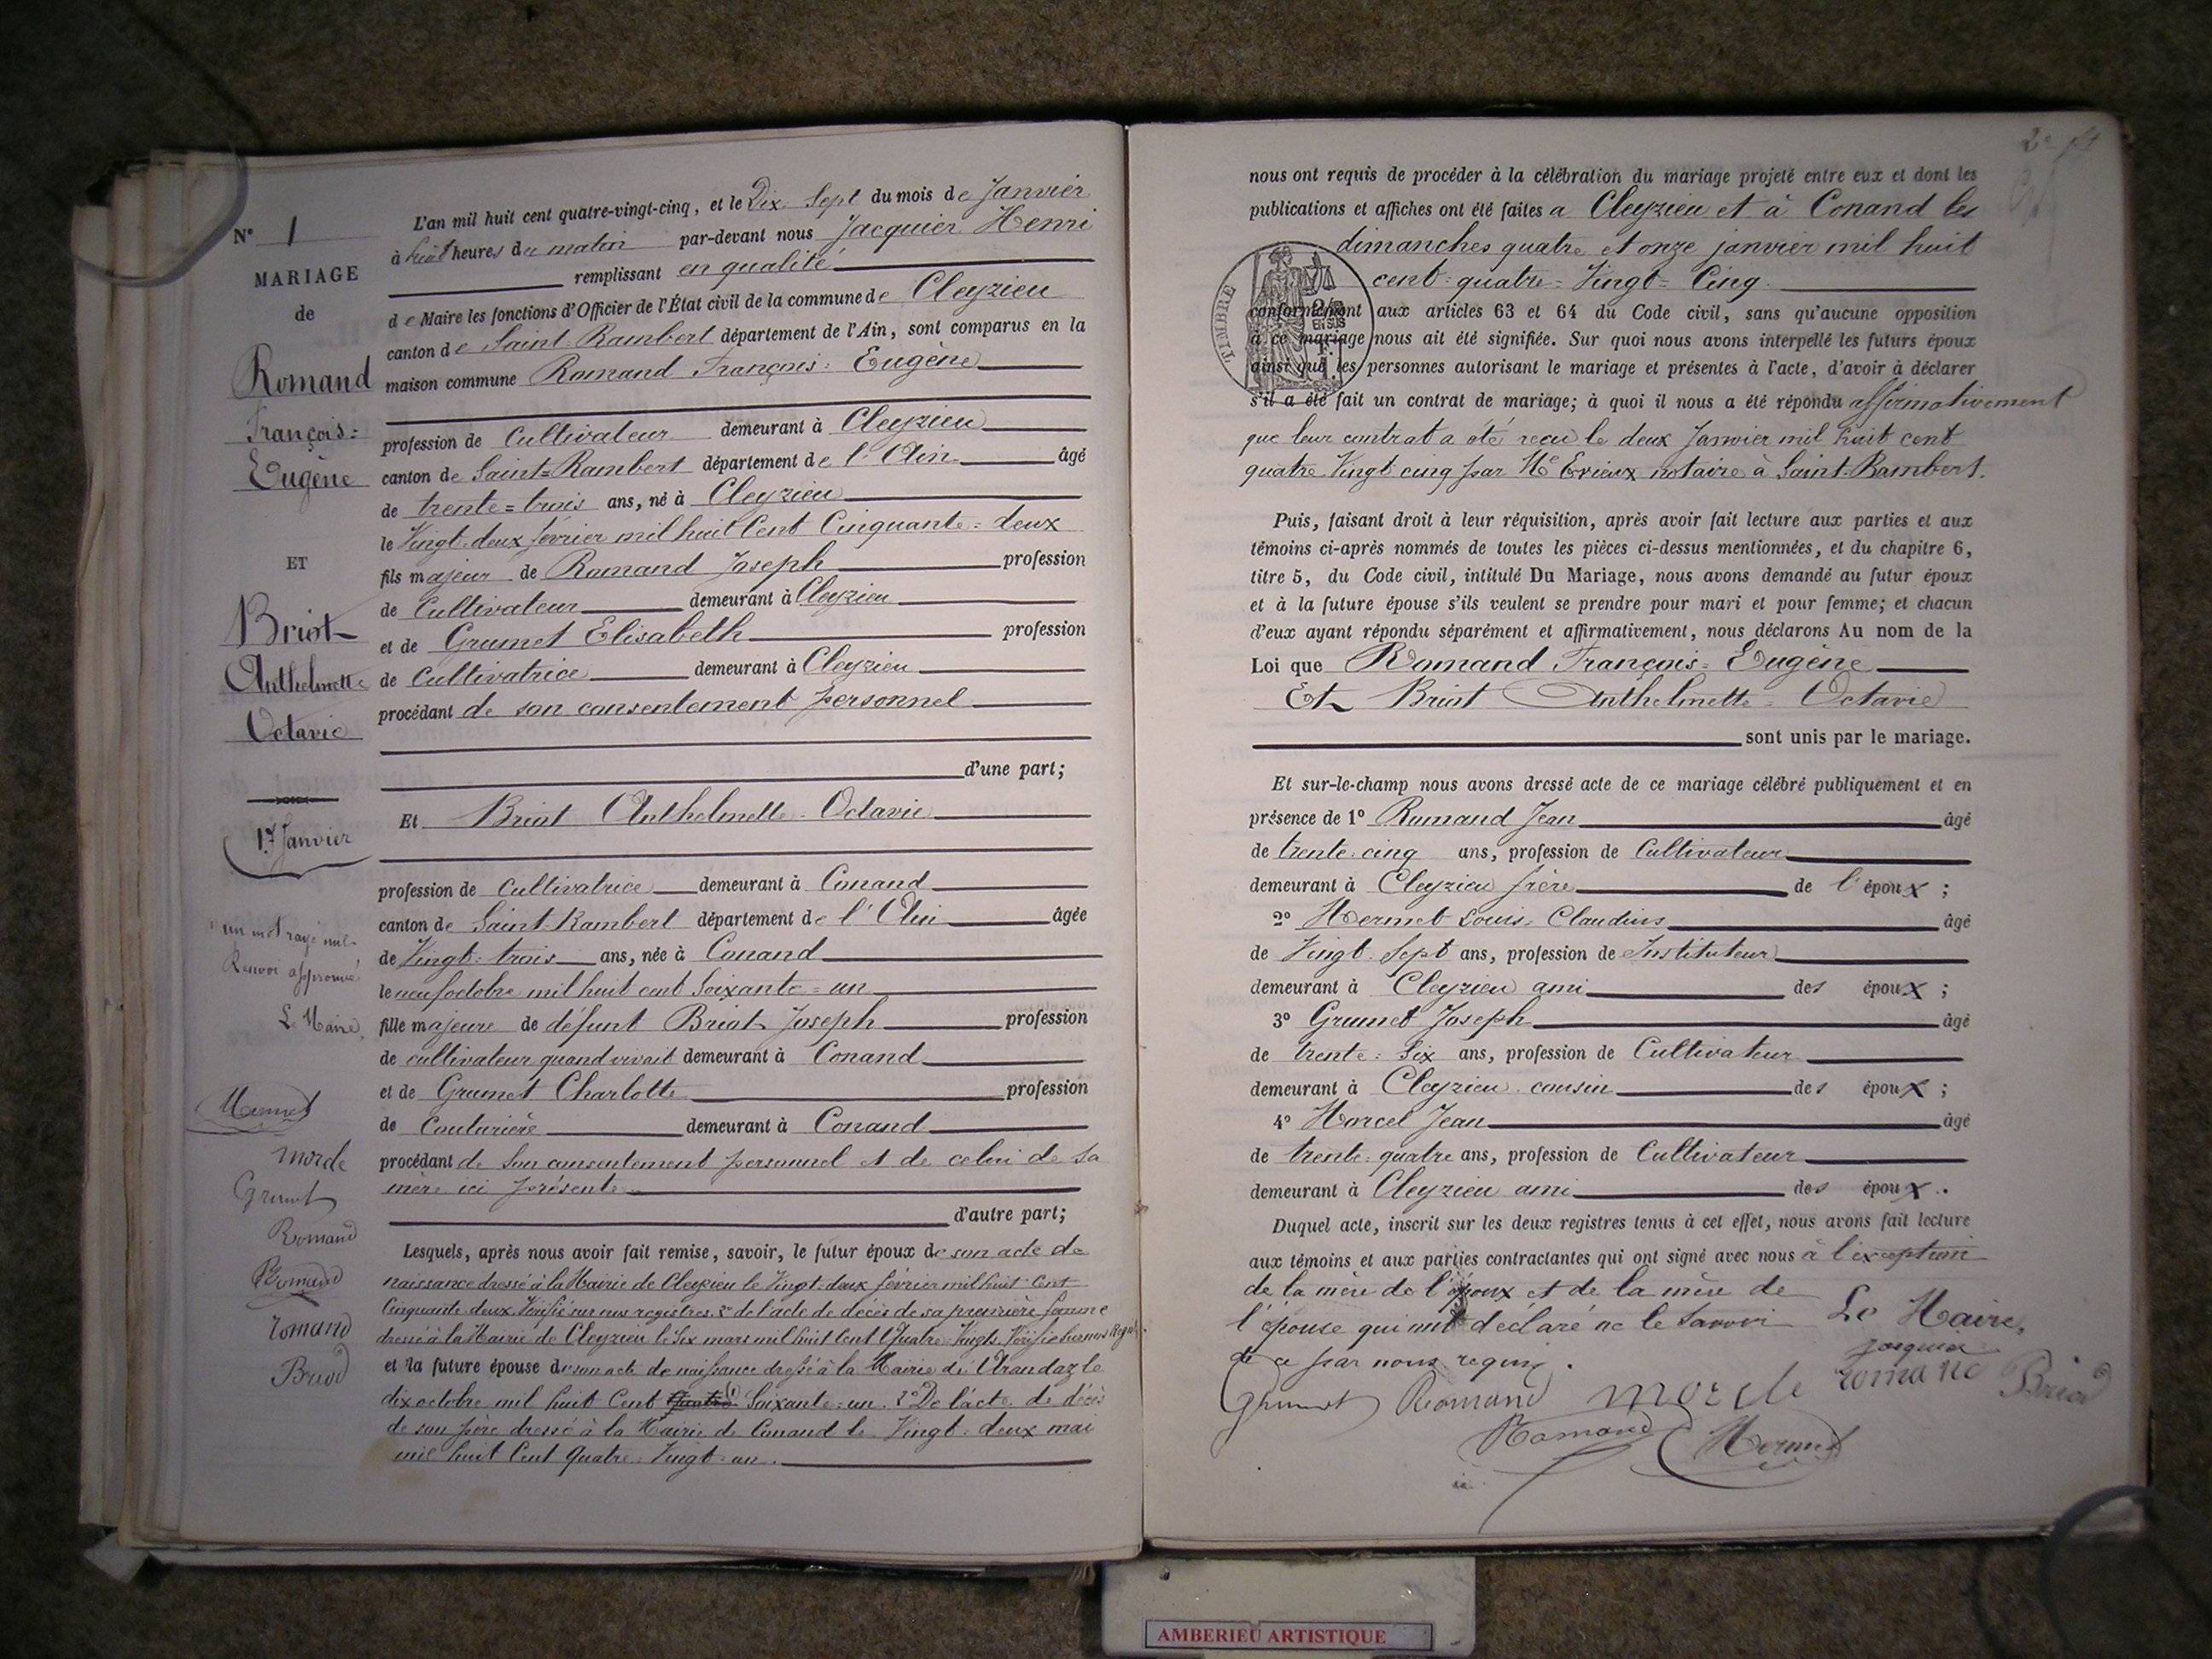 N° 1
MARIAGE
de
Romand
François =
Eugène
ET
Briot
Anthelmette
Octavie
17 Janvier
un mot rayé nul
Renvoi approuvé
Le Maire
Mermet
morcle
Grumet
Romand
Romand
romand
Briod
L'an mil huit cent quatre-vingt-cinq, et le Dix Sept du mois de Janvier
à huit heures du matin par-devant nous Jacquier Henri
remplissant en qualité
de Maire les fonctions d'Officier de l'État civil de la commune de Cleyzieu
canton de Saint-Rambert département de l'Ain, sont comparus en la
maison commune Romand François = Eugène
profession de Cultivateur demeurant à Cleyzieu
canton de Saint=Rambert département de l'Ain âgé
de trente=trois ans, né à Cleyzieu
le Vingt-deux février mil huit Cent Cinquante=deux
fils majeur de Romand Joseph profession
de Cultivateur demeurant à Cleyzieu
et de Grumet Elisabeth profession
de Cultivatrice demeurant à Cleyzieu
procédant de son consentement personnel
d'une part;
Et Briot Anthelmette=Octavie
profession de Cultivatrice demeurant à Conand
canton de Saint-Rambert département de l'Ain âgée
de Vingt=trois ans, née à Conand
le neuf octobre mil huit cent Soixante=un
fille majeure de défunt Briot Joseph profession
de cultivateur quand vivait demeurant à Conand
et de Grumet Charlotte profession
de Couturière demeurant à Conand
procédant de Son consentement personnel et de celui de sa
mère ici présente
d'autre part;
Lesquels, après nous avoir fait remise, savoir, le futur époux de son acte de
naissance dressé à la Mairie de Cleyzieu le Vingt-deux février mil huit Cent
Cinquante deux Vérifié sur nos registres. 2° de l'acte de décès de sa première femme
dressé à la Mairie de Cleyzieu le Six mars mil huit Cent Quatre Vingts. Vérifié sur nos Regist.
et la future épouse de son acte de naissance dressé à la Mairie de Arandaz le
dix octobre mil huit Cent Quatre (1) Soixante=un. 2° De l'acte de décès
de son père dressé à la Mairie de Conand le Vingt=deux mai
mil huit Cent Quatre Vingt=un.
nous ont requis de procéder à la célébration du mariage projeté entre eux et dont les
publications et affiches ont été faites à Cleyzieu et à Conand les
dimanches quatre et onze janvier mil huit
cent=quatre=Vingt=Cinq
TIMBRE
conformément aux articles 63 et 64 du Code civil, sans qu'aucune opposition
à ce mariage nous ait été signifiée. Sur quoi nous avons interpellé les futurs époux
ainsi que les personnes autorisant le mariage et présentes à l'acte, d'avoir à déclarer
s'il a été fait un contrat de mariage; à quoi il nous a été répondu affirmativement
que leur contrat a été reçu le deux Janvier mil huit cent
quatre Vingt cinq par Me Erieux notaire à Saint-Rambert.
Puis, faisant droit à leur réquisition, après avoir fait lecture aux parties et aux
témoins ci-après nommés de toutes les pièces ci-dessus mentionnées, et du chapitre 6,
titre 5, du Code civil, intitulé Du Mariage, nous avons demandé au futur époux
et à la future épouse s'ils veulent se prendre pour mari et pour femme; et chacun
d'eux ayant répondu séparément et affirmativement, nous déclarons Au nom de la
Loi que Romand François=Eugène
Et Briot Anthelmette=Octavie
sont unis par le mariage.
Et sur-le-champ nous avons dressé acte de ce mariage célébré publiquement et en
présence de 1° Romand Jean âgé
de trente-cinq ans, profession de Cultivateur
demeurant à Cleyzieu frère de l'époux;
2° Mermet Louis-Claudius âgé
de Vingt-Sept ans, profession de Instituteur
demeurant à Cleyzieu ami des époux;
3° Grumet Joseph âgé
de trente=Six ans, profession de Cultivateur
demeurant à Cleyzieu cousin des époux;
4° Morcel Jean âgé
de trente-quatre ans, profession de Cultivateur
demeurant à Cleyzieu ami des époux.
Duquel acte, inscrit sur les deux registres tenus à cet effet, nous avons fait lecture
aux témoins et aux parties contractantes qui ont signé avec nous à l'exception
de la mère de l'époux et de la mère de
l'épouse qui ont déclaré ne le savoir Le Maire,
de ce par nous requis. Jacquier
Grumet Romand morcle romand Briod
Romand Mermet
AMBERIEU ARTISTIQUE